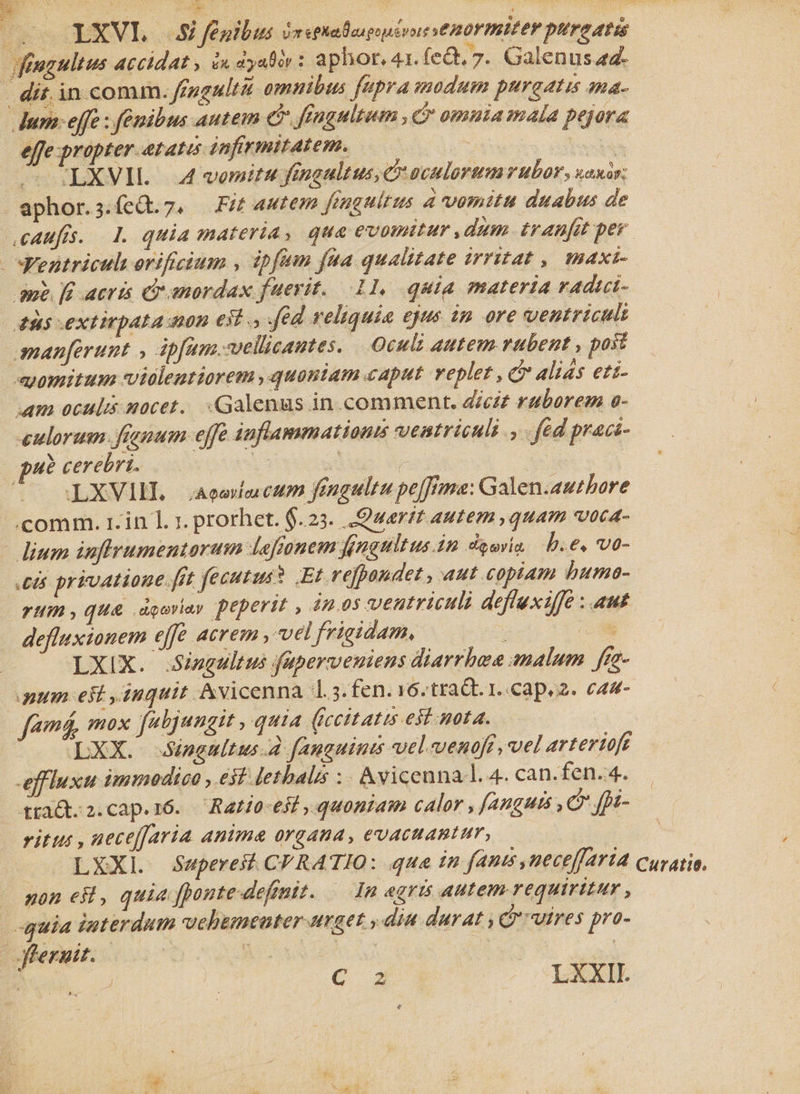 LXVI. Si ſenibus ὑπερκαθαιρομένοις enormiter purgatis
ſingultus accidat, ἐκ ἀγαθόν: aphor. 41. ſect. 7. Galenus ad-
dit in comm. ſingultū omnibus ſupra modum purgatis ma-
lum eſſe: ſenibus autem & ſingultum, & omnia mala pejora
eſſe propter ætatis infirmitatem.
LXVII. A vomitu ſingultus, & oculorum rubor, κακὸν:
aphor. 3. ſect. 7. Fit autem ſingultus à vomitu duabus de
cauſis. I. quia materia, quæ evomitur, dum tranſit per
Ventriculi orificium, ipſum ſua qualitate irritat, maxi-
mè ſi acris & mordax fuerit. II. quia materia radici-
tùs extirpata non eſt, ſed reliquiæ ejus in ore ventriculi
manſerunt, ipſum vellicantes. Oculi autem rubent, poſt
vomitum violentiorem, quoniam caput replet, & aliàs eti-
am oculis nocet. Galenus in comment. dicit ruborem o-
culorum ſignum eſſe inflammationis ventriculi, ſed præci-
puè cerebri.
LXVIII. Ἀφωνία cum ſingultu peſſima: Galen. authore
comm. 1. in l. 1. prorhet. §. 23. Quærit autem, quam voca-
lium inſtrumentorum læſionem ſingultus in ἀφωνία h. e. vo-
cis privatione ſit ſecutus? Et reſpondet, aut copiam humo-
rum, quæ ἀφωνίαν peperit, in os ventriculi defluxiſſe: aut
defluxionem eſſe acrem, vel frigidam,
LXIX. Singultus ſuperveniens diarrhœæ malum ſig-
num eſt, inquit Avicenna l. 3. fen. 16. tract. 1. cap. 2. cau-
ſamq́, mox ſubjungit, quia ſiccitatis eſt nota.
LXX. Singultus à ſanguinis vel venoſi, vel arterioſi
effluxu immodico, eſt lethalis: Avicenna l. 4. can. fen. 4.
tract. 2. cap. 16. Ratio eſt, quoniam calor, ſanguis, & ſpi-
ritus, neceſſaria animæ organa, evacuantur,
LXXI. Supereſt CVRATIO: quæ in ſanis, neceſſaria Curatio.
non eſt, quia ſponte deſinit. In ægris autem requiritur,
quia interdum vehementer urget, diu durat, & vires pro-
ſternit.
C 2 LXXII.